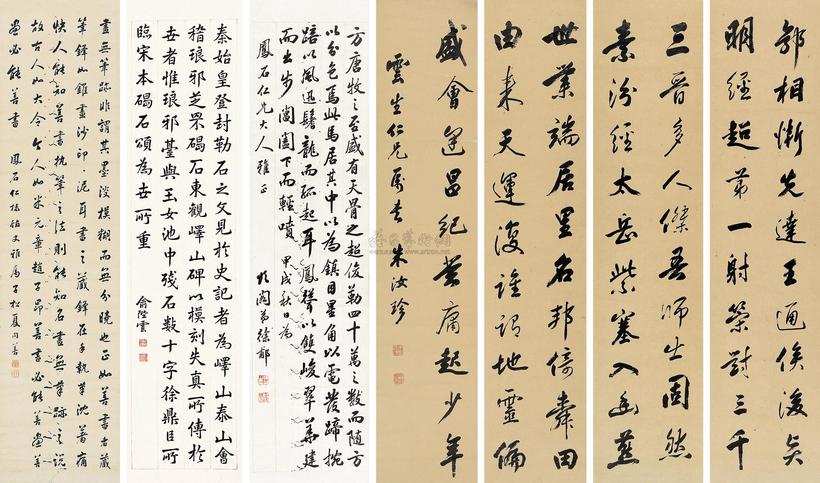 郤相慚先達王通俟後
明經超第一射策對三千
三晉多人傑吾師出固然
素汾經太岳紫塞入幽燕
世業端居里名邦倚舜田
由来天運復誰謂地靈偏
盛會逢昌紀無庸起少年
雲生仁兄屬書 朱汝珍
方唐牧之至盛有天骨之超俊勒四十萬之數而隨方
以分色焉此馬居其中以為鎮目星角以電發蹄捥
踣以風迅鬐龍而孤起耳鳳聳以雙峻翠華建
而出步閶闔下而輕噴 甲戌秋日為
鳳石仁兄大人雅正 頌閣弟徐郙
秦始皇登封勒石之文見於史記者為嶧山泰山會
稽琅邪芝罘碣石東觀嶧山碑以模刻失真所傳於
世者惟琅邪臺與玉女池中殘石數十字徐鼎臣所
臨宋本碣石頌為世所重
俞陛雲
畫無筆跡非謂其墨淡模糊而無分曉也正如善書者藏
筆鋒如錐畫沙印印泥耳書之藏鋒在乎執筆沈著痛
快人能知善書執筆之法則能知名畫無筆跡之說
故古人如大令今人如米元章趙子昂善書必能善畫善
畫必能善書 鳳石仁棣館丈雅屬 子松夏同善